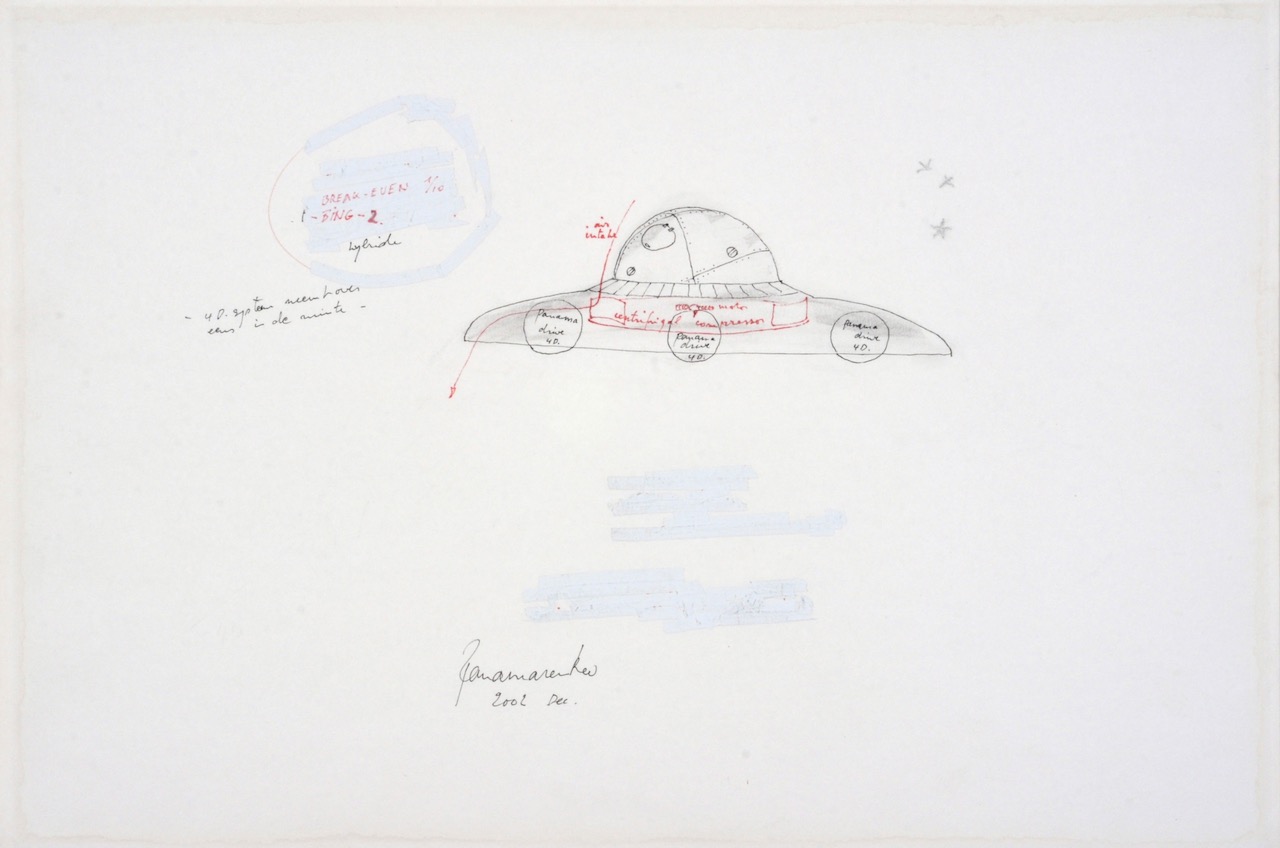 BREAK-EVEN 1/10
1-BING-2.
hybride
- 4D. systeem neemt over
eens in de ruimte -
air
intake
motor
centrifugal compressor
Panama
drive
4D.
Panama
drive
4D.
Panama
drive
4D.
Panamarenko
2002 Dec.